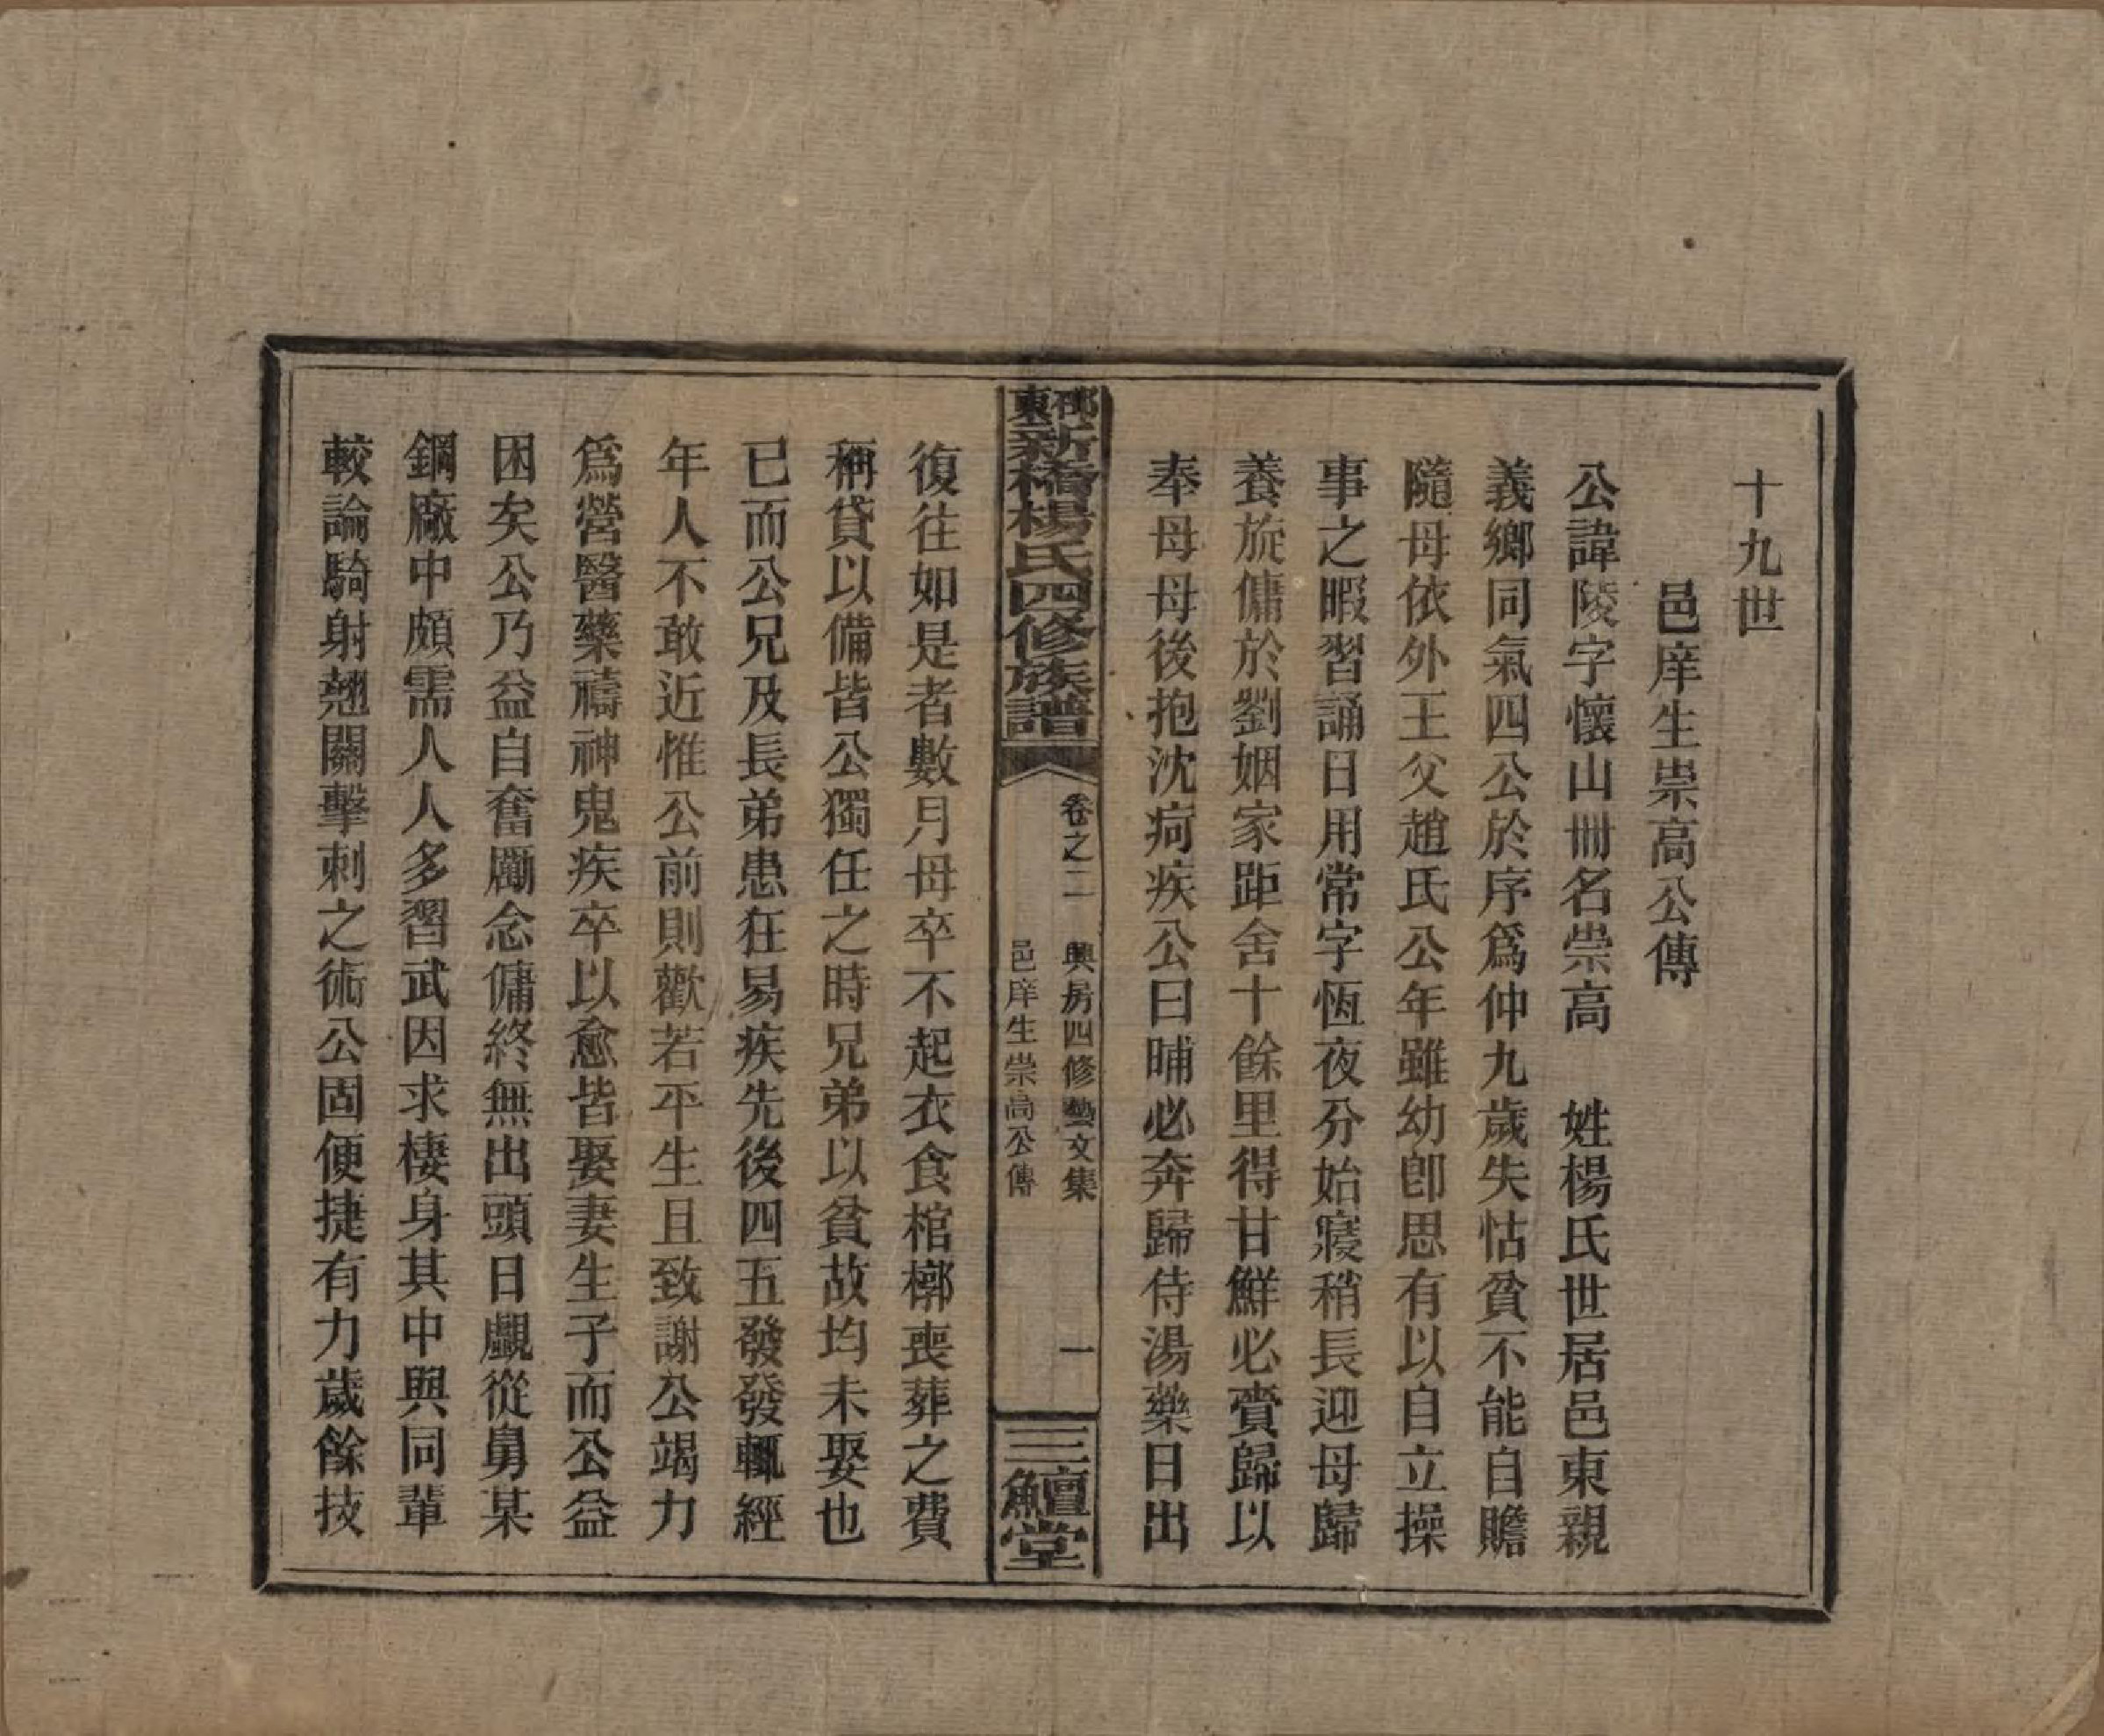 十九世
邑庠生崇高公傳
公諱陵字懷山冊名崇高　姓楊氏世居邑東親
義鄉同氣四公於序爲仲九歲失怙貧不能自贍
隨母依外王父趙氏公年雖幼卽思有以自立操
事之暇習誦日用常字恆夜分始寢稍長迎母歸
養旋傭於劉姻家距舍十餘里得甘鮮必賫歸以
奉母母後抱沈疴疾公曰晡必奔歸侍湯藥日出
東新橋楊氏四修族譜
卷之二　興房四修藝文集
邑庠生崇高公傳
一
三鱣堂
復往如是者數月母卒不起衣食棺槨喪葬之費
稱貸以備皆公獨任之時兄弟以貧故均未娶也
已而公兄及長弟患狂易疾先後四五發發輒經
年人不敢近惟公前則歡若平生且致謝公竭力
爲營醫藥禱神鬼疾卒以愈皆娶妻生子而公益
困矣公乃益自奮勵念傭終無出頭日覷從舅某
鋼廠中頗需人人多習武因求棲身其中與同輩
較論騎射翹關擊刺之術公固便捷有力歲餘技